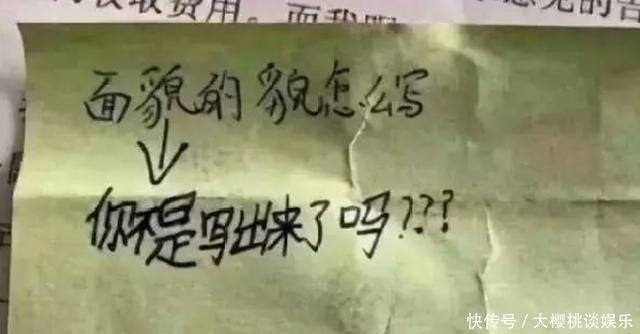 收取费用。而我
见的告
面貌的貌怎么写
你不是写出来了吗???
快传号/大樱桃谈娱乐